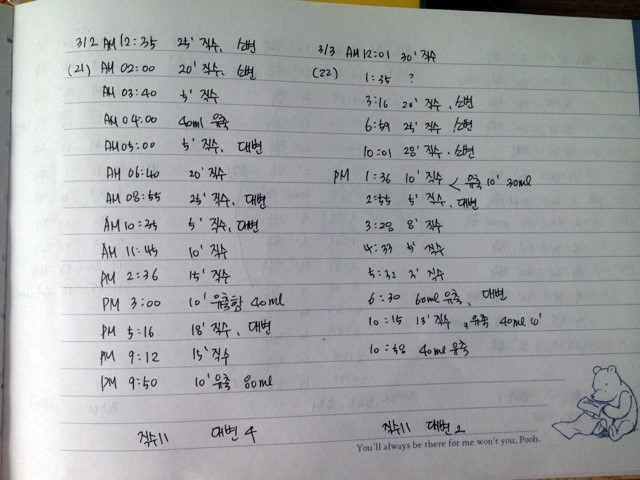 3/2 AM 12:35 25' 직수, 소변
(21) AM 02:00 20' 직수, 소변
AM 03:40 5' 직수
AM 04:00 40ml 유축
AM 05:00 5' 직수, 대변
AM 06:40 20' 직수
AM 08:55 25' 직수, 대변
AM 10:35 5' 직수, 대변
AM 11:45 10' 직수
PM 2:36 15' 직수
PM 3:00 10' 유축함 40ml
PM 5:16 18' 직수, 대변
PM 9:12 15' 직수
PM 9:50 10' 유축 80ml
직수11 대변 4
3/3 AM 12:01 30' 직수
(22) 1:35 ?
3:16 20' 직수, 소변
6:59 25' 직수, 소변
10:01 28' 직수, 소변
PM 1:36 10' 직수 < 유축 10' 30ml
2:55 5' 직수, 대변
3:28 8' 직수
4:33 5' 직수
5:32 직수
6:30 60ml 유축, 대변
10:15 13' 직수, 유축 40ml 10'
10:58 40ml 유축
직수11 대변 2
You'll always be there for me won't you, Pooh.